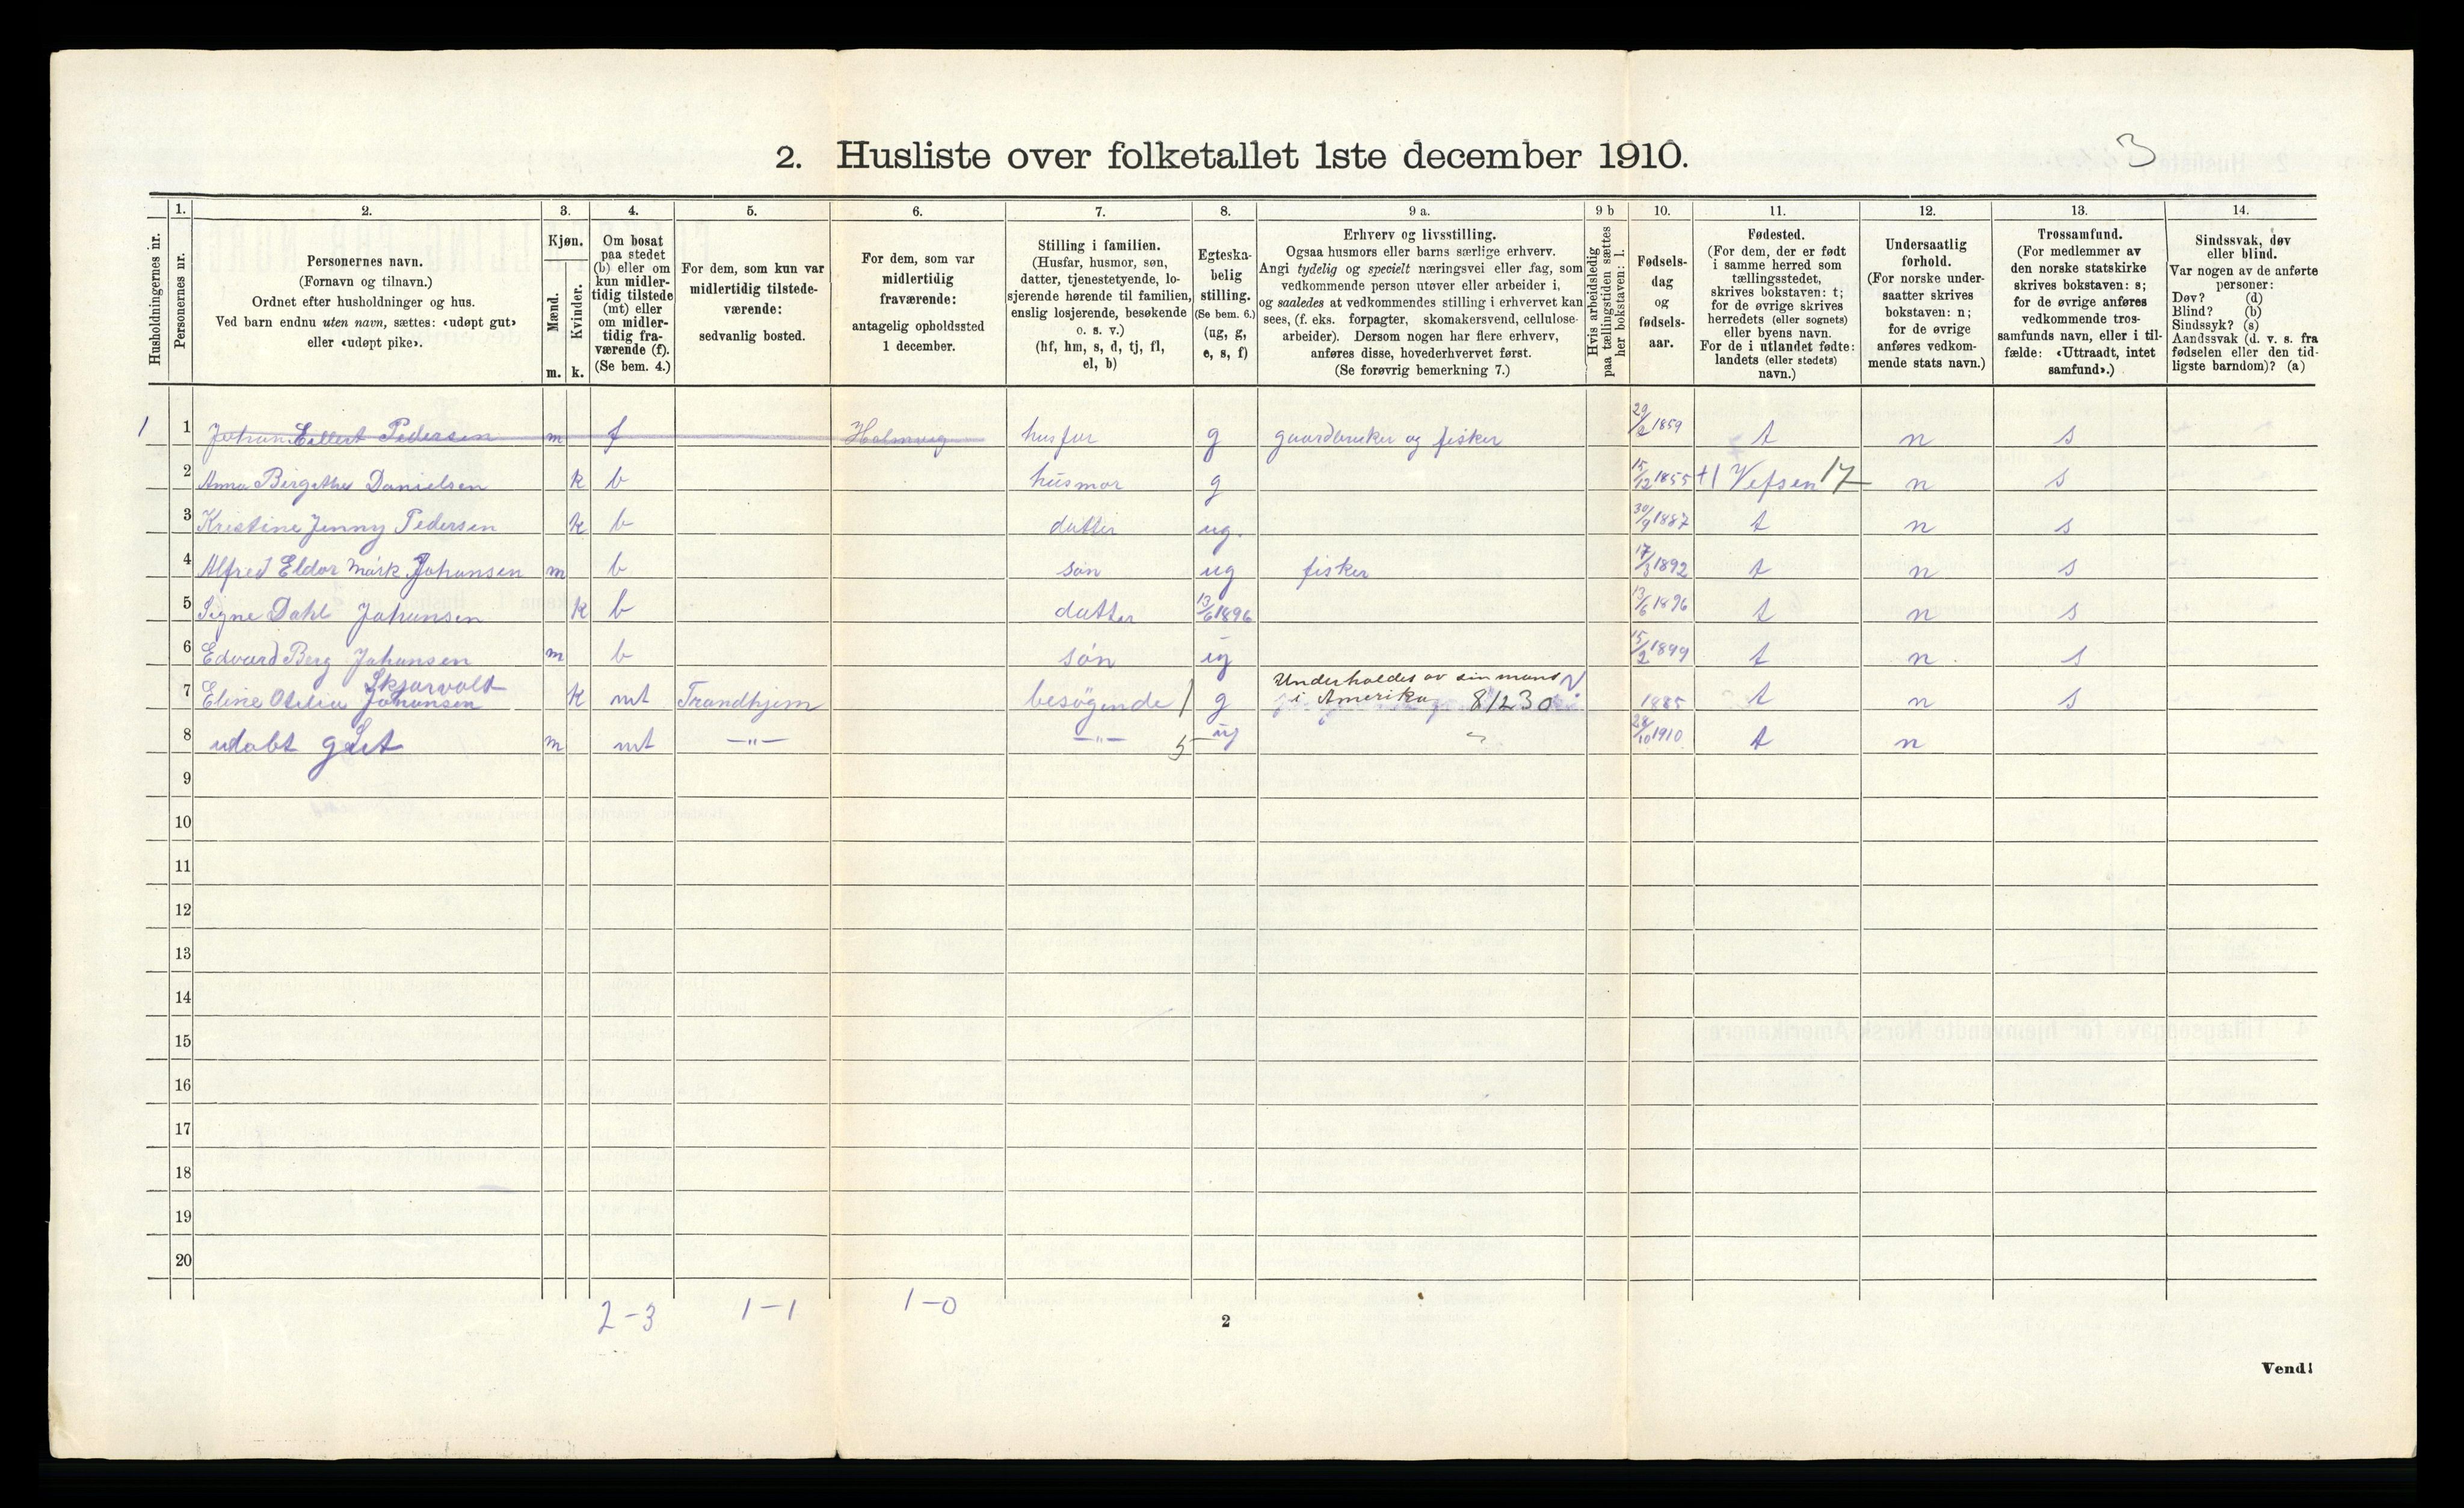 2. Husliste over folketallet 1ste december 1910.
3
Husholdningernes nr.
1.
Personernes nr.
2.
Personernes navn.
(Fornavn og tilnavn.)
Ordnet efter husholdninger og hus.
Ved barn endnu uten navn, sættes: «udøpt gut»
eller «udøpt pike».
3.
Kjøn.
Mænd.
Kvinder.
m. k.
4.
Om bosat
paa stedet
(b) eller om
kun midler-
tidig tilstede
(mt) eller
om midler-
tidig fra-
værende (f).
(Se bem. 4.)
5.
For dem, som kun var
midlertidig tilstede-
værende:
sedvanlig bosted.
6.
For dem, som var
midlertidig
fraværende:
antagelig opholdssted
1 december.
7.
Stilling i familien.
(Husfar, husmor, søn,
datter, tjenestetyende, lo-
sjerende hørende til familien,
enslig losjerende, besøkende
o. s. v.)
(hf, hm, s, d, tj, fl,
el, b)
8.
Egteska-
belig
stilling.
(Se bem. 6.)
(ug, g,
e, s, f)
9 a.
Erhverv og livsstilling.
Ogsaa husmors eller barns særlige erhverv.
Angi tydelig og specielt næringsvei eller fag, som
vedkommende person utøver eller arbeider i,
og saaledes at vedkommendes stilling i erhvervet kan
sees, (f. eks. forpagter, skomakersvend, cellulose-
arbeider). Dersom nogen har flere erhverv,
anføres disse, hovederhvervet først.
(Se forøvrig bemerkning 7.)
9 b
Hvis arbeidsledig
paa tællingstiden sættes
her bokstaven: l.
10.
Fødsels-
dag
og
fødsels-
aar.
11.
Fødested.
(For dem, der er født
i samme herred som
tællingsstedet,
skrives bokstaven: t;
for de øvrige skrives
herredets (eller sognets)
eller byens navn.
For de i utlandet fødte:
landets (eller stedets)
navn.)
12.
Undersaatlig
forhold.
(For norske under-
saatter skrives
bokstaven: n;
for de øvrige
anføres vedkom-
mende stats navn.)
13.
Trossamfund.
(For medlemmer av
den norske statskirke
skrives bokstaven: s;
for de øvrige anføres
vedkommende tros-
samfunds navn, eller i til-
fælde: «Uttraadt, intet
samfund».)
14.
Sindssvak, døv
eller blind.
Var nogen av de anførte
personer:
Døv? (d)
Blind? (b)
Sindssyk? (s)
Aandssvak (d. v. s. fra
fødselen eller den tid-
ligste barndom)? (a)
1 1 Johan Pedersen m f husfar g gaardbruker og fisker 1859 t n s
2 Anna Bergithe Danielsen k b husmor g 15/12 1855 +1 Vefsen 17 n s
3 Kristine Jenny Pedersen k b datter ug. 30/9 1887 t n s
4 Alfred Eldor Mark Johansen m b søn ug fisker 17/3 1892 t n s
5 Signe Dahl Johansen k b datter 13/6 1896 13/6 1896 t n s
6 Edvard Berg Johansen m b søn ug 15/2 1899 t n s
7 Eline Otilia Johansen k mt Trondhjem besøgende g Underholdes av sin mand i Amerika 81230 1885 t n s
8 udøbt gut m mt —"— —"— 5 ug 28/10 1910 t n
9
10
11
12
13
14
15
16
17
18
19
20
2-3 1-1 1-0
2
Vend!